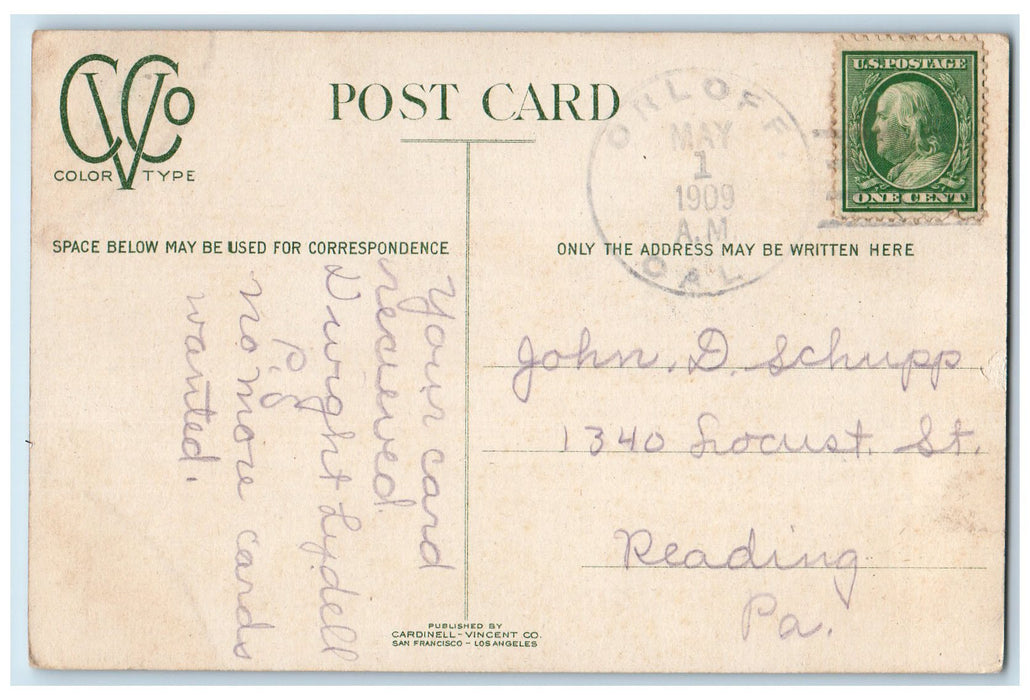 CVCo
COLOR TYPE
POST CARD
ORLOFF.
MAY
1
1909
A.M.
CAL.
U.S. POSTAGE
ONE CENT
SPACE BELOW MAY BE USED FOR CORRESPONDENCE
ONLY THE ADDRESS MAY BE WRITTEN HERE
Your card
recieved.
Dwight Lydell
P.S
no more cards
wanted.
John. D. Schupp
1340 Locust. St.
Reading
Pa.
PUBLISHED BY
CARDINELL-VINCENT CO.
SAN FRANCISCO - LOS ANGELES